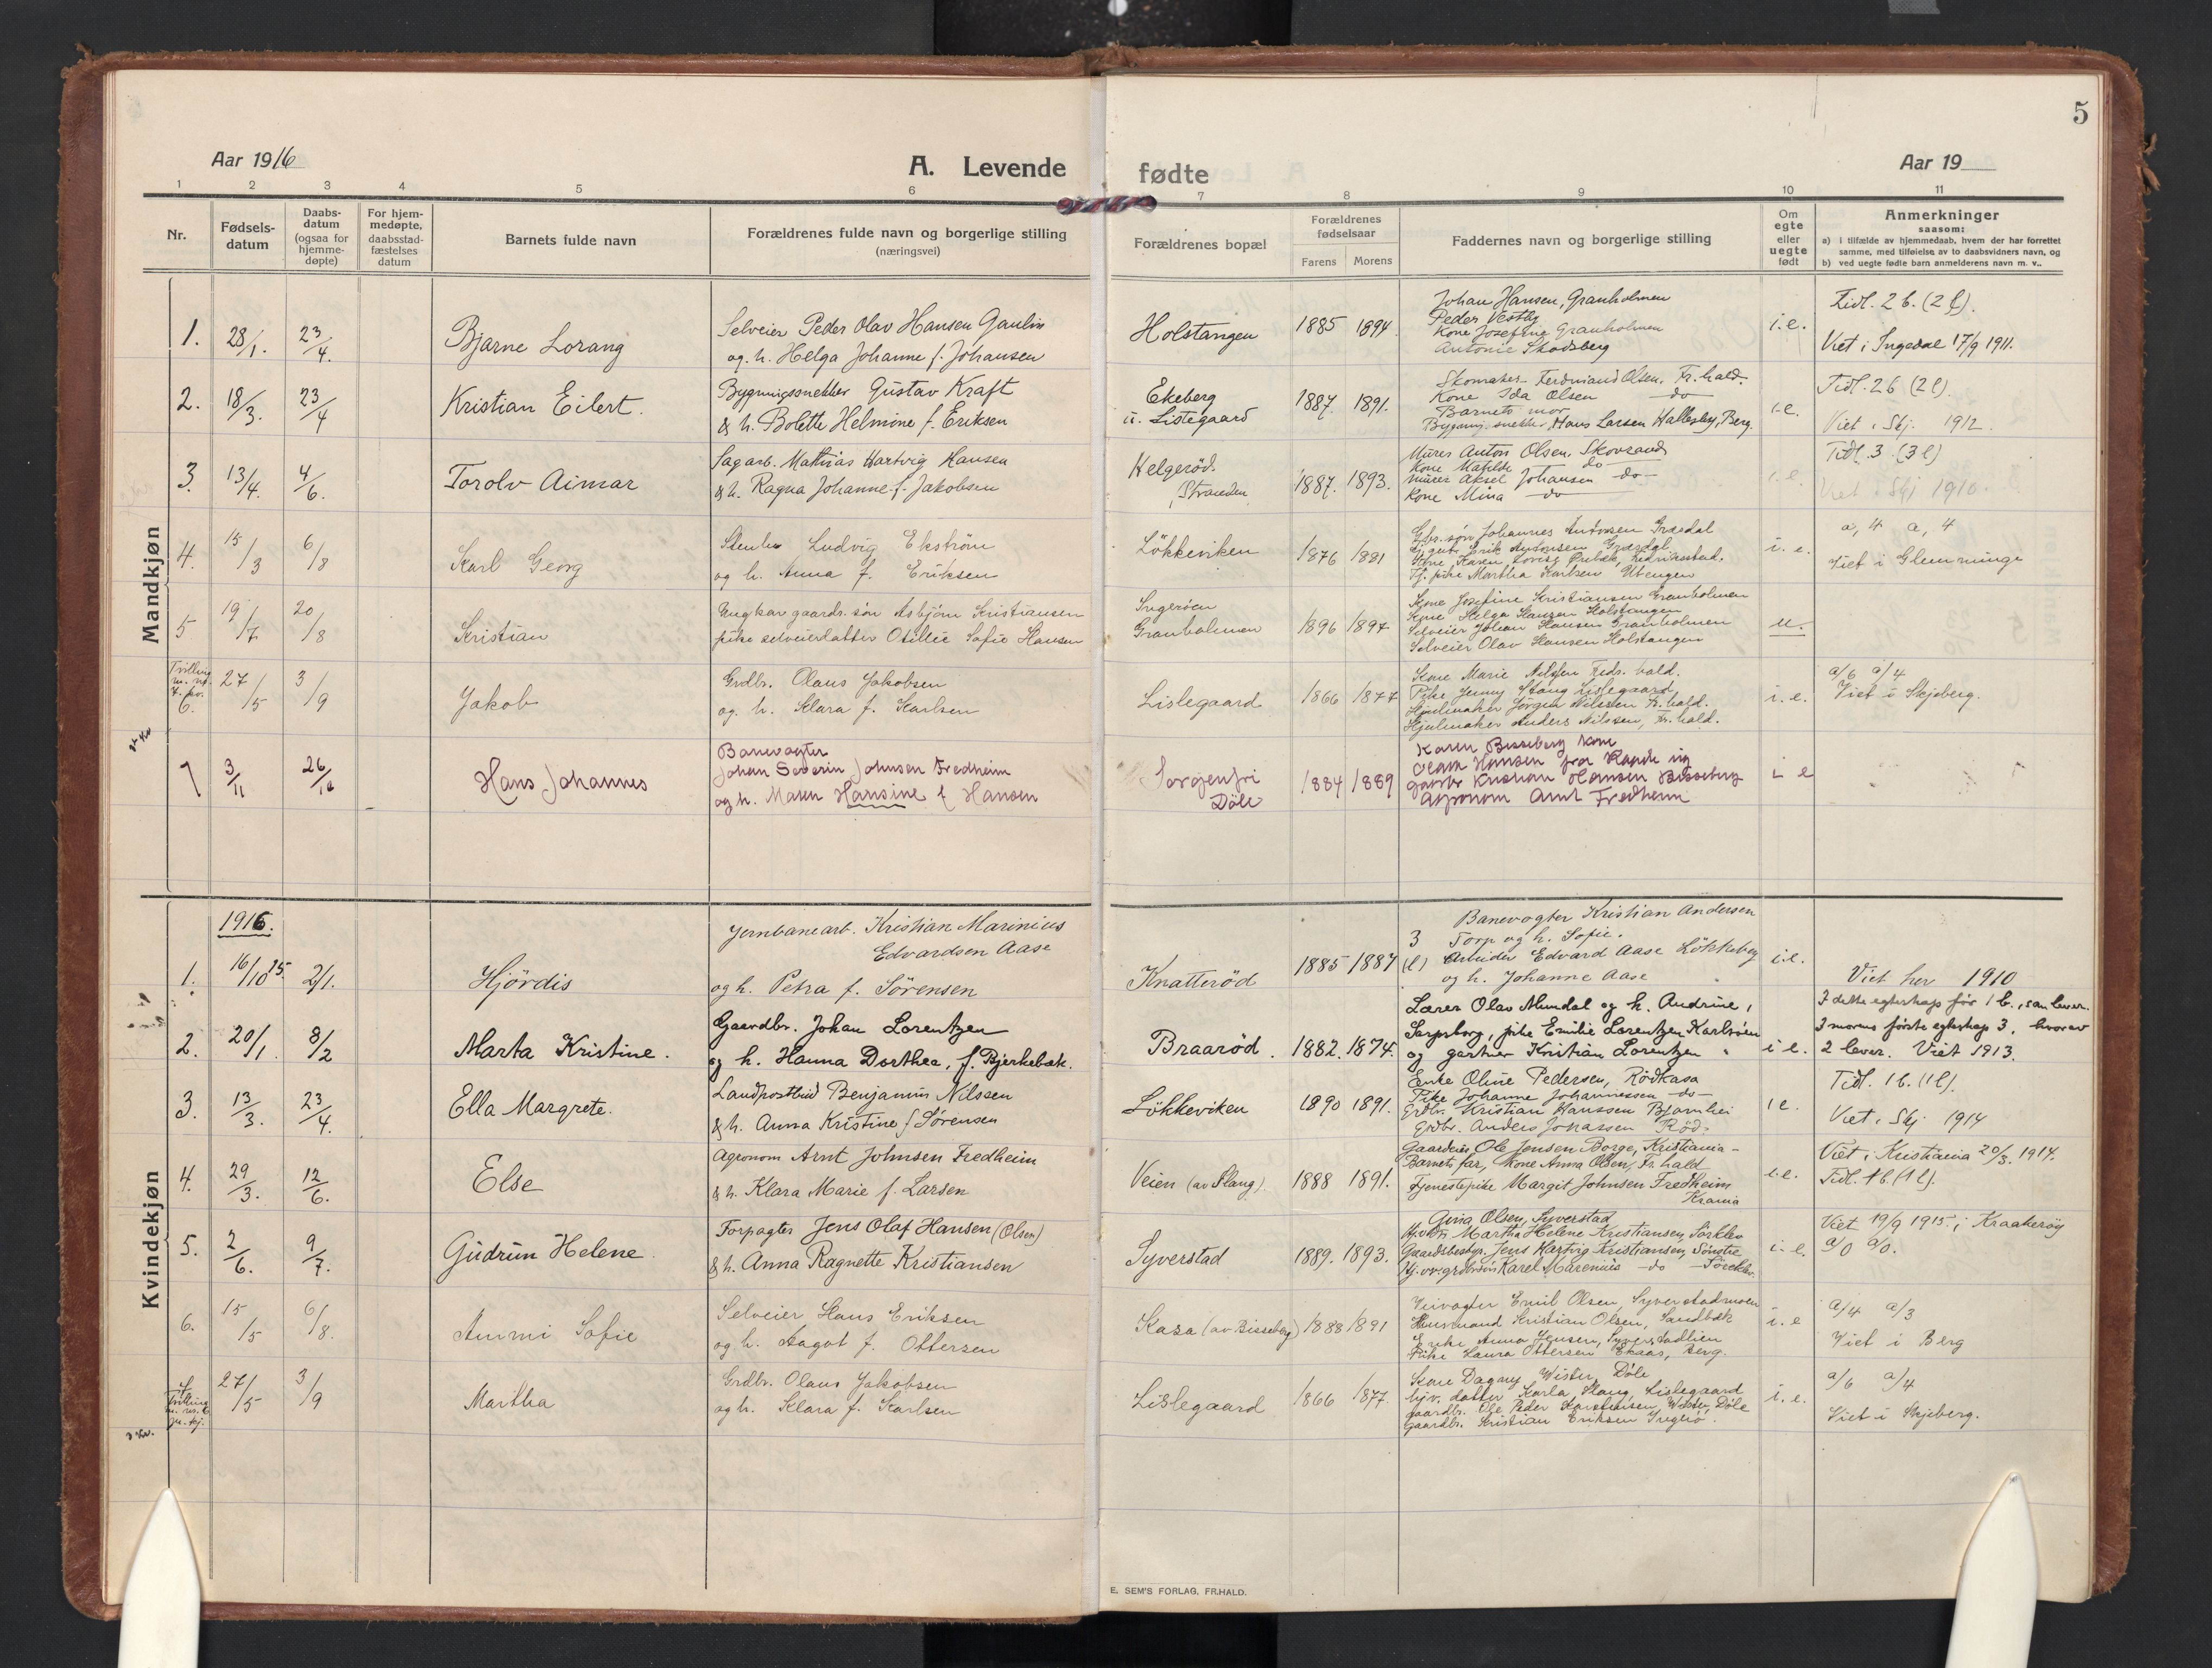 5
Aar 1916
A. Levende
fødte
Aar 19
1 2 3 4 5 6 7 8 9 10 11
Nr.
Fødsels-
datum
Daabs-
datum
(ogsaa for
hjemme-
døpte)
For hjem-
medøpte,
daabsstad-
fæstelses
datum
Barnets fulde navn
Forældrenes fulde navn og borgerlige stilling
(næringsvei)
Forældrenes bopæl
Forældrenes
fødselsaar
Farens Morens
Faddernes navn og borgerlige stilling
Om
egte
eller
uegte
født
Anmerkninger
saasom:
a) i tilfælde av hjemmedaab, hvem der har forrettet
samme, med tilføielse av to daabsvidners navn, og
b) ved uegte fødte barn anmelderens navn m. v..
Mandkjøn
1. 28/1. 23/4.
Bjarne Lorang
Selveier Peder Olav Hansen Gaulin
og h. Helga Johanne f. Johansen
Holstangen
1885 1894.
Johan Hansen, Granholmen
Peder Vestby
Kone Josefine Granholmen
Antonie Skodsberg
i.e.
Tidl. 2 b. (2 l).
Viet i Ingedal 17/9 1911.
2. 18/3. 23/4
Kristian Eilert.
Bygningssnekker Gustav Kraft
& h. Bolette Helmine f. Eriksen
Ekeberg
u. Listegaard
1887. 1891.
Skomaker Ferdinand Olsen. Fr.hald.
Kone Ida Olsen do
Barnets mor
Bygning.snekker, Hans Larsen Hallesby, Berg.
i.e.
Tidl. 2 b (2 l).
Viet i Skj. 1912.
3. 13/4. 4/6.
Torolv Aimar
Sagarb. Mathias Hartvig Hansen
& h. Ragna Johanne f. Jakobsen
Helgerød.
Stranden
1887. 1893.
Murer Anton Olsen, Skovsand
Kone Matilde do
Murer Aksel Johansen do
Kone Mina do
i.e.
Tidl. 3 (3 l)
Viet i Skj 1910.
4. 15/3 6/8
Karl Georg
Stenhu Ludvig Ekstrøm
og h. Anna f. Eriksen
Løkkeviken
1876 1881
Johannes Antonsen
Erik Antonsen
Kone Karen
Martha Karlsen Utengen
i. e.
a, 4 a, 4
Viet i Glemminge
5 19/7 20/8
Kristian
Ungkar gaards.søn Asbjørn Kristiansen
pike selveierdatter Otillie Sofie Hansen
Ingerøen
Granholmen
1896 1897
Kone Josefine Kristiansen Granholmen
Kone Helga Hansen Holstangen
Selveier Johan Hansen Granholmen
Selveier Olav Hansen Holstangen
u.
Tvilling
m. nr.
7. kv.
6. 27/5 3/9
Jakob
Grdbr. Olaus Jakobsen
og. h. Klara f. Karlsen
Lislegaard
1866 1877
Kone Marie Nilssen Freds. hald.
Pike Jenny Stang Lislegaard
Hjulmaker Jørgen Nilssen Fr. hald.
Hjulmaker Anders Nilssen, Fr. hald.
i. e.
a/6 a/4
Viet i Skjeberg.
7 3/11 26/12
Hans Johannes
Banevogter
Johan Severin Johnsen Fredheim
og h. Maren Hansine f Hansen
Sorgenfri
Døle
1884 1889
Karen Bisseberg kone
Olava Hansen fra Raade og
gaardbr Kristian Hansen Bisseberg
Agronom Arnt Fredheim
i e
Kvindekjøn
1916.
1. 16/10 15. 2/1.
Hjørdis
Jernbanearb. Kristian Marinius
Edvardsen Aase
og h. Petra f. Sørensen
Knatterød
1885 1887
Banevogter Kristian Andersen
3 Torp og h. Sofie.
(l) Arbeider Edvard Aase Løkkeberg
og h. Johanne Aase
i.e.
Viet her 1910
2. 20/1. 8/2
Marta Kristine.
Gaardbr. Johan Lorentzen
og h. Hanna Dorthea, f. Bjerkebæk.
Braarød.
1882. 1874.
Lærer Olav Mundal og h. Andrine,
Sarpsborg, pike Emilie Lorentzen Karlsøen
og gartner Kristian Lorentzen "
i e.
I dette egteskap før 1 b., som lever.
I morens første egteskap 3, hvorav
2 lever. Viet 1913.
3. 13/3. 23/4.
Ella Margrete.
Landpostbud Benjamin Nilssen
& h. Anna Kristine f Sørensen
Løkkeviken
1890 1891.
Enke Oline Pedersen, Rødkasa
Pike Johanne Johannessen do
Grdbr. Kristian Hanssen Bjørnhei
Grdbr. Anders Johassen Rød
i e.
Tidl. 1 b. (1 l).
Viet i Skj 1914
4. 29/3. 12/6.
Else
Agronom Arnt Johnsen Fredheim
& h. Klara Marie f. Larsen
Veien (av Stang).
1888 1891.
Gaardeier Ole Jensen Borge, Kristiania
Barnets far, Kone Anna Olsen, Fr. hald
Tjenestepike Margit Johnsen Fredheim
Krania
i.e.
Viet i Kristiania 20/3. 1914.
Tidl. 1 b. (1 l).
5. 2/6. 9/7.
Gudrun Helene.
Forpagter Jens Olaf Hansen (Olsen)
& h. Anna Ragnette Kristiansen
Syverstad
1889. 1893.
Gina Olsen, Syverstad
Martha Helene Kristiansen, Sørklev
Gaardsbestyr. Jens Hartvig Kristiansen, Sønstre
Karel Marenius do Søreklev
i. e.
Viet 19/9 1915 i Kraakerøy
a/0 a/0.
6. 15/5 6/8.
Ammi Sofie
Selveier Hans Eriksen
og h. Aagot f. Ottersen
Kasa (av Bisseberg)
1888 1891
Veivogter Emil Olsen, Syverstadmoen
Husmand Kristian Olsen, Sandbæk
Enke Anna Jensen, Syverstadlien
Pike Laura Ottersen Ekaas, Berg.
i. e
a/4 a/3
Viet i Berg
7
Tvilling
m. nr. 6
m. kj.
27/5 3/9
Martha
Grdbr. Olaus Jakobsen
og h. Klara f. Karlsen
Lislegaard
1866 1877.
Kone Dagny Wister, Døle
datter Karla Stang, Lislegaard
Gaardbr. Ole Peder Karstensen Wister, Døle
Gaardbr. Kristian Eriksen Ingerø.
i. e.
a/6 a/4
Viet i Skjeberg.
E. SEM'S FORLAG, FR.HALD.